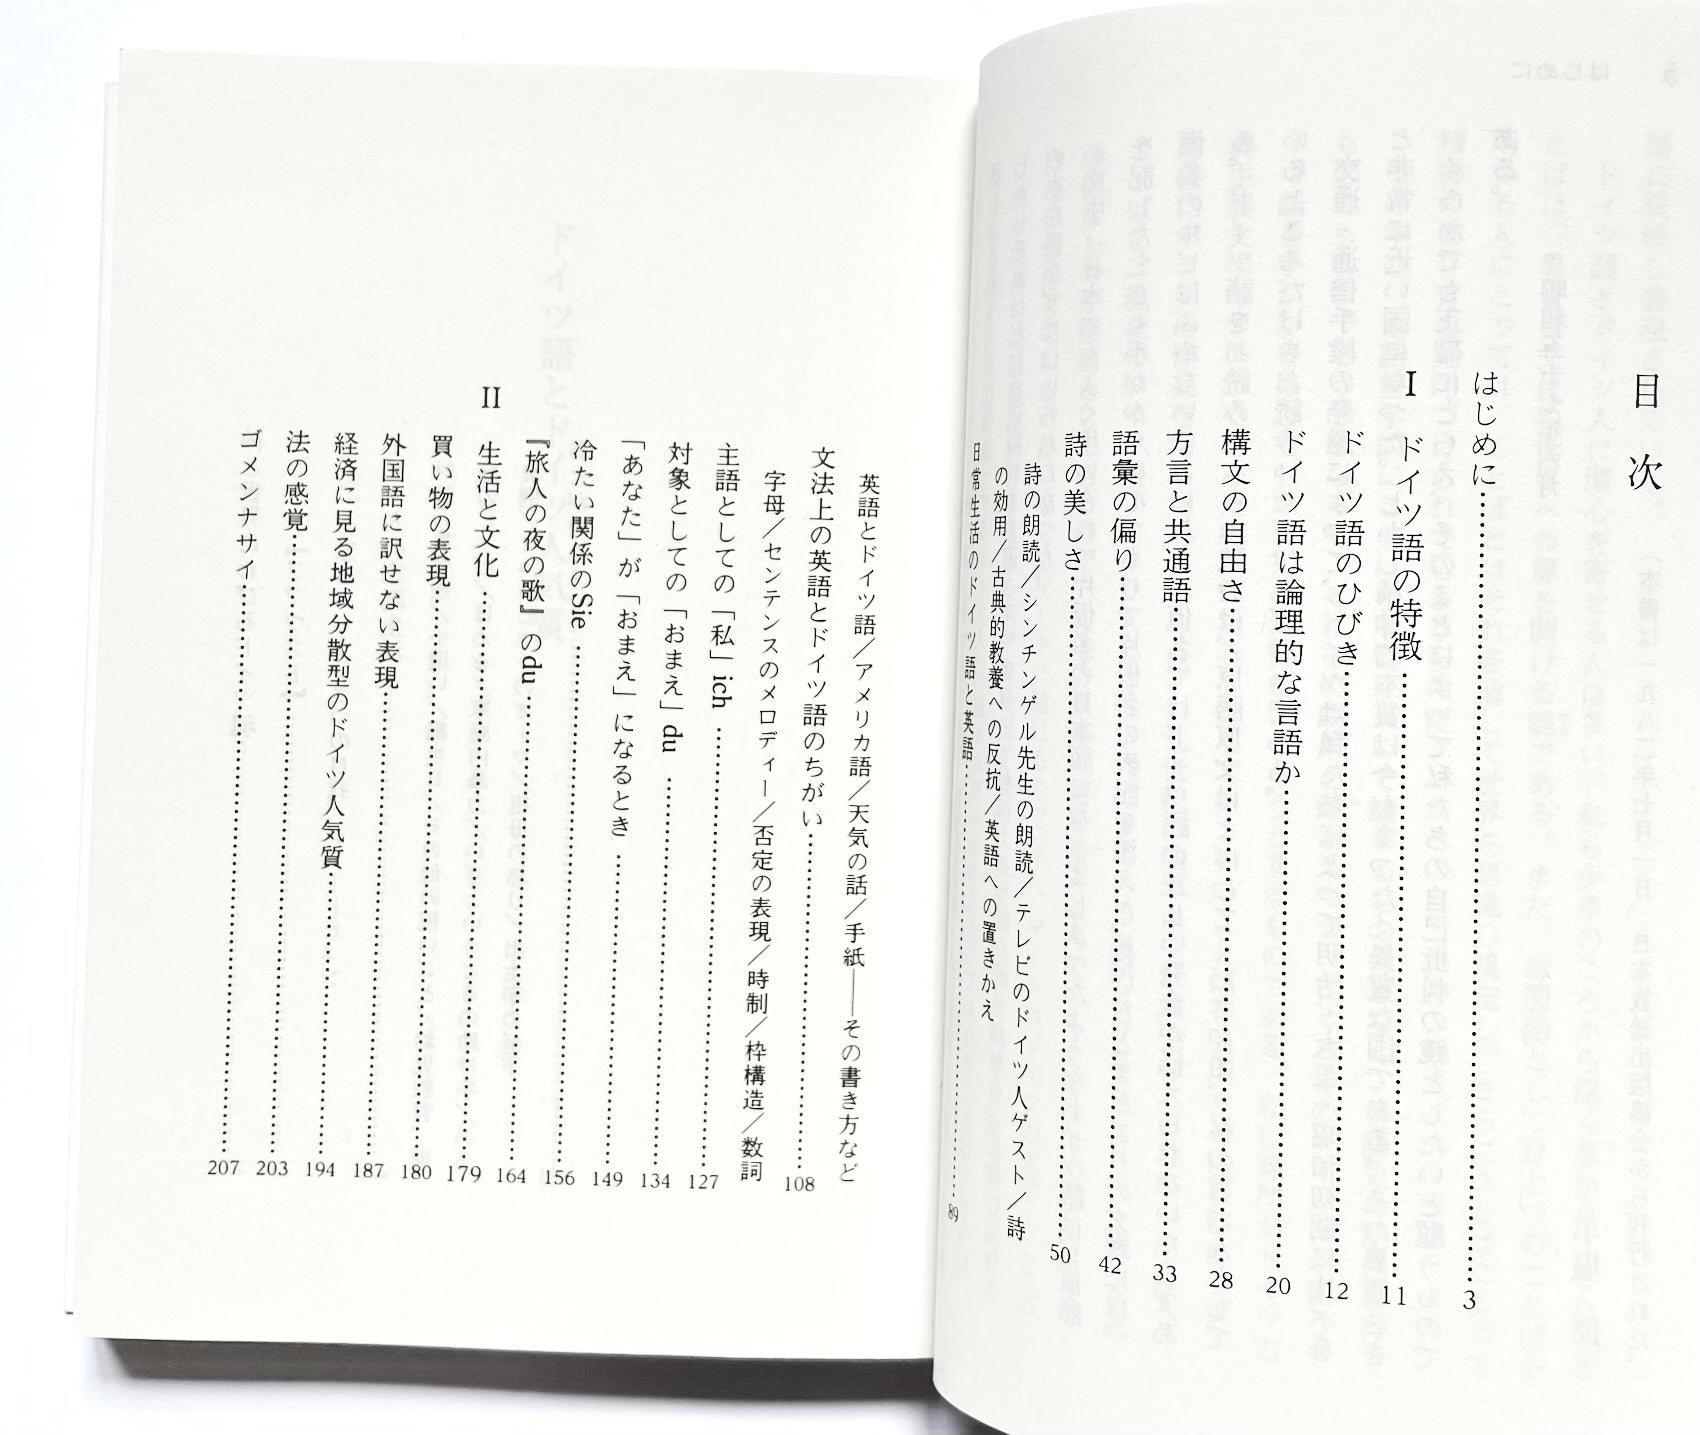 目次
はじめに……3
I　ドイツ語の特徴……11
ドイツ語のひびき……12
ドイツ語は論理的な言語か……20
構文の自由さ……28
方言と共通語……33
語彙の偏り……42
詩の美しさ……50
詩の朗読／シンチンゲル先生の朗読／テレビのドイツ人ゲスト／詩
の効用／古典的教養への反抗／英語への置きかえ
日常生活のドイツ語と英語……89
英語とドイツ語／アメリカ語／天気の話／手紙——その書き方など
文法上の英語とドイツ語のちがい……108
字母／センテンスのメロディー／否定の表現／時制／枠構造／数詞
主語としての「私」ich……127
対象としての「おまえ」du……134
「あなた」が「おまえ」になるとき……149
冷たい関係のSie……156
『旅人の夜の歌』のdu……164
II　生活と文化……179
買い物の表現……180
外国語に訳せない表現……187
経済に見る地域分散型のドイツ人気質……194
法の感覚……203
ゴメンナサイ……207